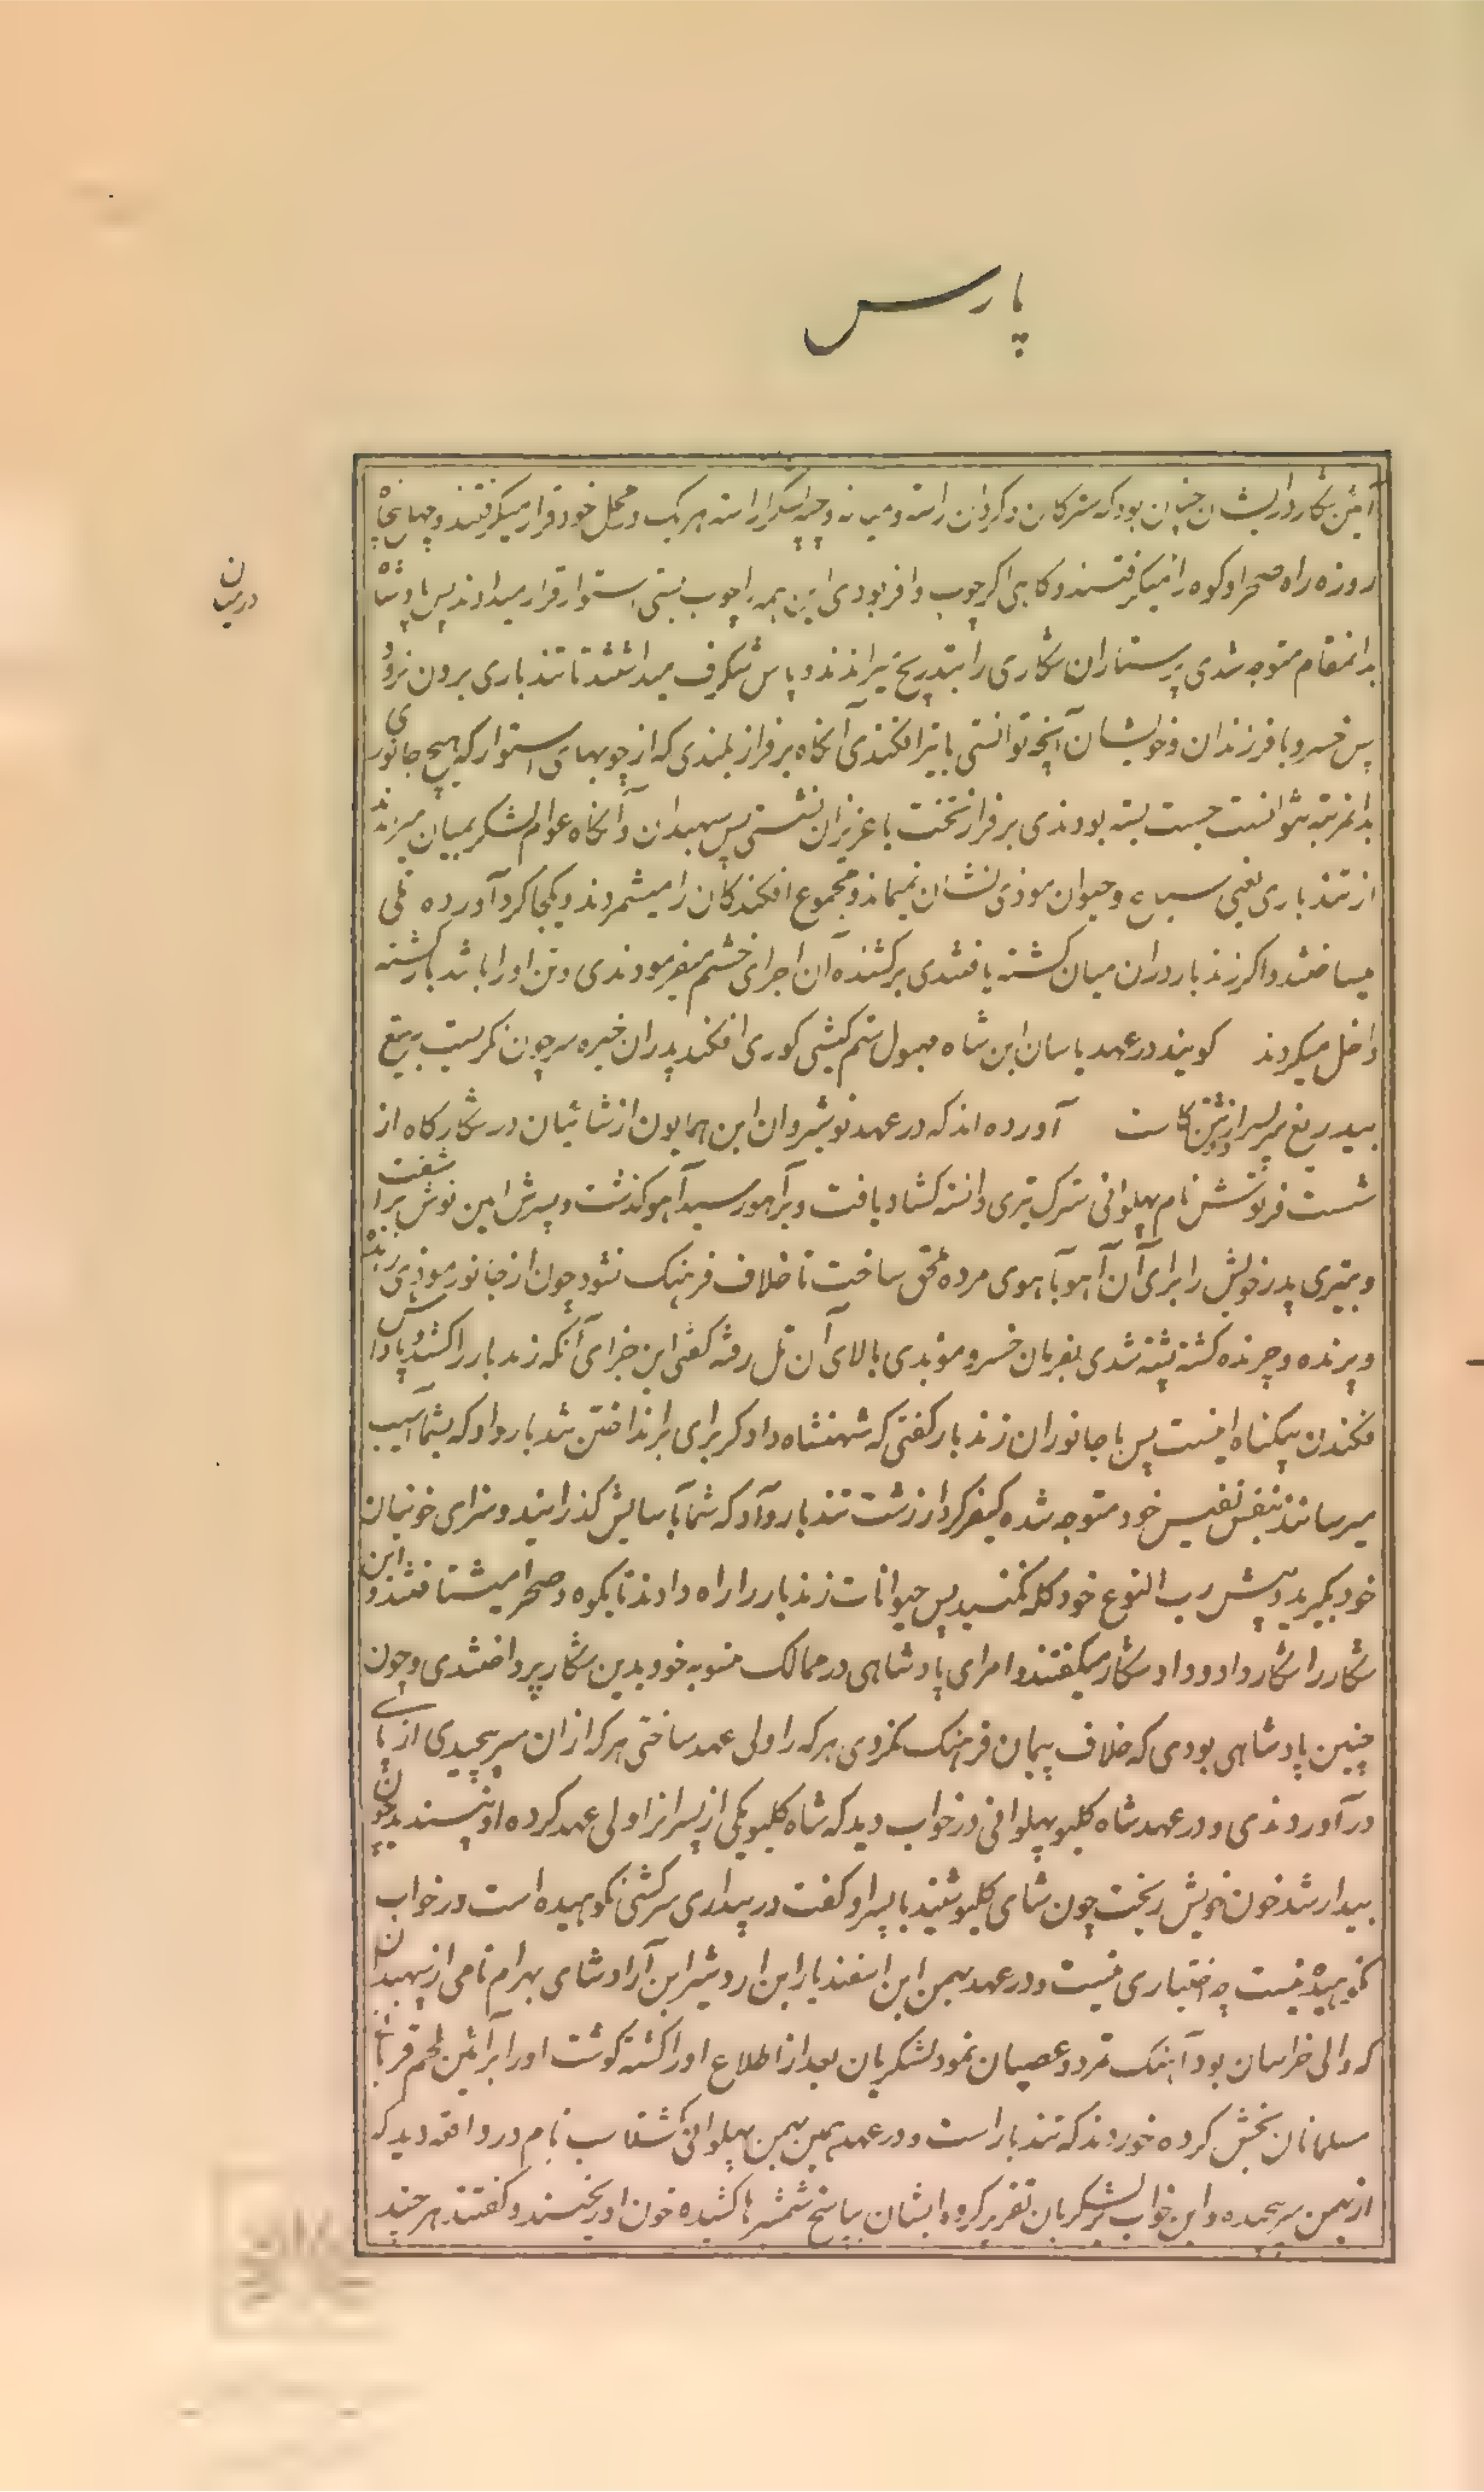 پارس
آئین شکار در ایشان چنان بود که سترکان و کردان راسته و میانه و چپه لشکر آراسته هریک در محل خود قرار میگرفتند و چهل پنجاه
روزه راه صحرا و کوه را میگرفتند و کاهی اگر چوب وافر بودی این همه را چوب بستی استوار قرار میدادند پس پادشاه
دربیان
بدانمقام متوجه شدی پرستاران شکاری را بتدریج میراندند و پاس شکرف میداشتند تا تندباری برون نرود
پس خسرو با فرزندان و خویشان آنچه توانستی با تیر افکندی آنگاه بر فراز بلندی که از چوبهای استوار که هیچ جانوری
بدانمرتبه نتوانست جست بسته بودندی بر فراز تخت با عزیزان نشستی پس سپهبدان و آنگاه عوام لشکر بمیان میریزند
از تندباری یعنی سباع و حیوان موذی نشان نمیماند و مجموع افکندگان را میشمردند و یکجا گرد آورده تلی
میساختند و اگر زندبار در آن میان کشته یافتندی بر کشنده آن اجرای خشم میفرمودندی و تن او را با تندبار کشته
داخل میکردند گویند در عهد یاسان ابن شاه مهبول ستم کیشی گوری افکند پدر آن خیره سر چون نگریست به تیغ
بیدریغ سر پسر از تن کاست آورده اند که در عهد نوشیروان ابن همایون از شائیان در شکارگاه از
شست فرنوش نام پهلوانی سترک تیری دانسته گشاد یافت و بر آهو رسید آهو گذشت و پسرش امین نوش برآشفت
و بتیری پدر خویش را برای آن آهو بآهوی مرده ملحق ساخت تا خلاف فرهنگ نشود چون از جانور موذی درنده
و پرنده و چرنده کشته پشته شدی بفرمان خسرو موبدی بالای آن تل رفته گفتی این جزای آنکه زندبار را کشد و پاداش
فکندن بیگناه اینست پس با جانوران زندبار گفتی که شهنشاه دادگر برای برانداختن تندبار داد که بشما آسیب
میرسانند بنفس نفیس خود متوجه شده کیفر کردار زشت تندبار داد که شما بآسایش گذرانید و سزای خونیان
خود بگیرید و پیش رب النوع خود گله نکنید پس حیوانات زندبار را راه دادند تا بکوه و صحرا میشتافتند و این
شکار را شکار داد و داد شکار میگفتند و امرای پادشاهی در ممالک منسوبه خود بدین شکار پرداختندی و چون
چنین پادشاهی بودی که خلاف پیمان فرهنگ نکردی هرکه را ولی عهد ساختی هرکه از آن سر پیچیدی از پای
درآوردندی و در عهد شاه کلیو پهلوانی در خواب دید که شاه کلیو یکی از پسران را ولی عهد کرده او نپسندید چون
بیدار شد خون خویش ریخت چون شای کلیو شنید با پسر او گفت در بیداری سرکشی نکوهیده است در خواب
نکوهیده نیست چه اختیاری نیست و در عهد بهمن ابن اسفندیار ابن اردشیر ابن آزاد شای بهرام نامی از سپهبدان
که والی خراسان بود آهنگ تمرد و عصیان نمود لشکریان بعد از اطلاع او را کشته گوشت او را بر آئین لحم قربانی
مسلمانان بخش کرده خوردند که تندبار است و در عهد بهمن بهمن پهلوانی گشتاسب نام در واقعه دید که
از بهمن سر پیچیده و این خواب بر لشکریان تقریر کرد ایشان بپاسخ شمشیرها کشیده خون او ریختند و گفتند هرچند